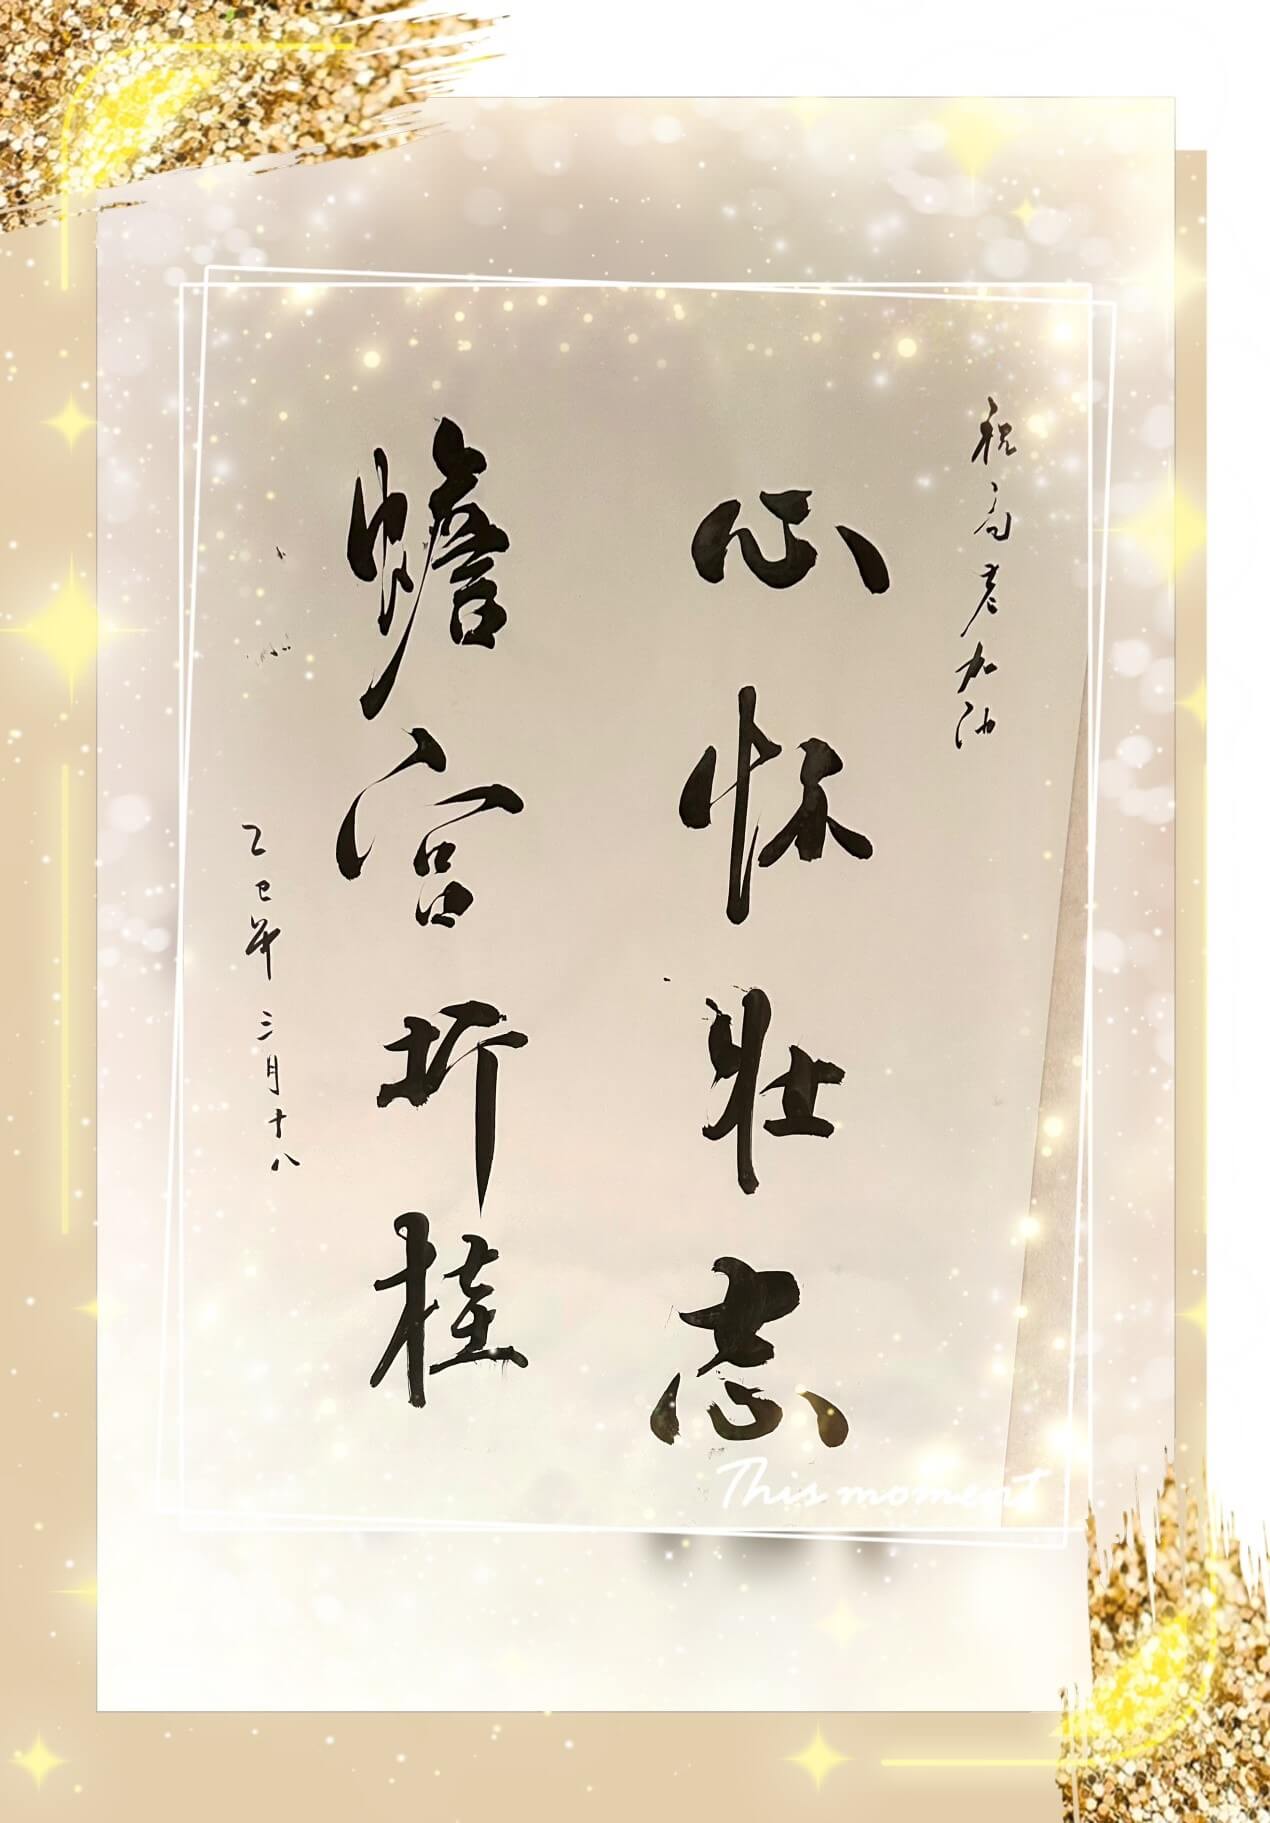 祝高考加油
心怀壮志
蟾宫折桂
乙巳年三月十八
This moment